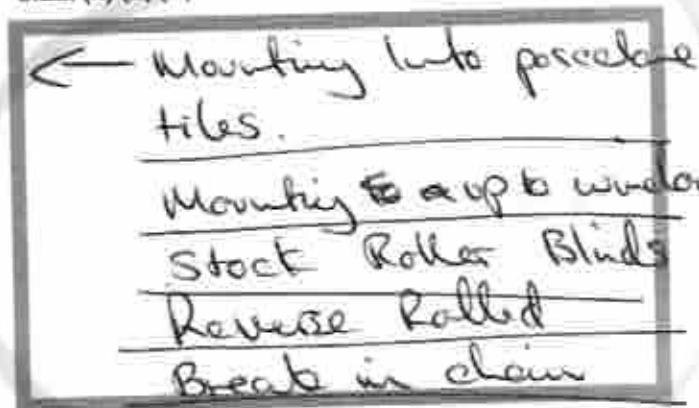 ← Mounting Into porcelane
tiles.
Mounting up to window
Stock Roller Blinds
Reverse Rolled
Break in chain